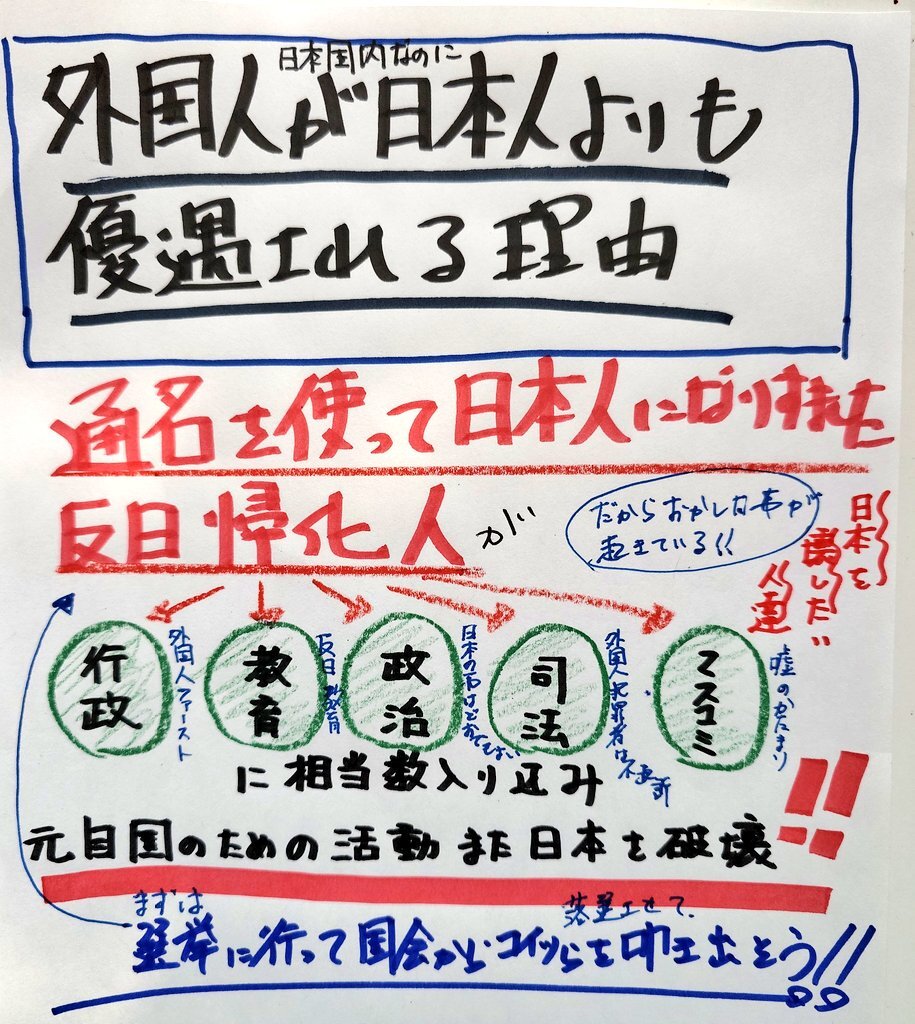 日本国内なのに
外国人が日本人よりも
優遇される理由
通名を使って日本人になりすました
反日帰化人が
だからおかしな事が
起きている!!
日本を
壊したい
人達
行政
外国人ファースト
教育
反日教育
政治
司法
外国人犯罪者は不起訴
マスコミ
嘘のかたまり
に相当数入り込み
元自国のための活動また日本を破壊
!!
まずは
落選させて、
選挙に行って国会からコイツらを叩き出そう!!